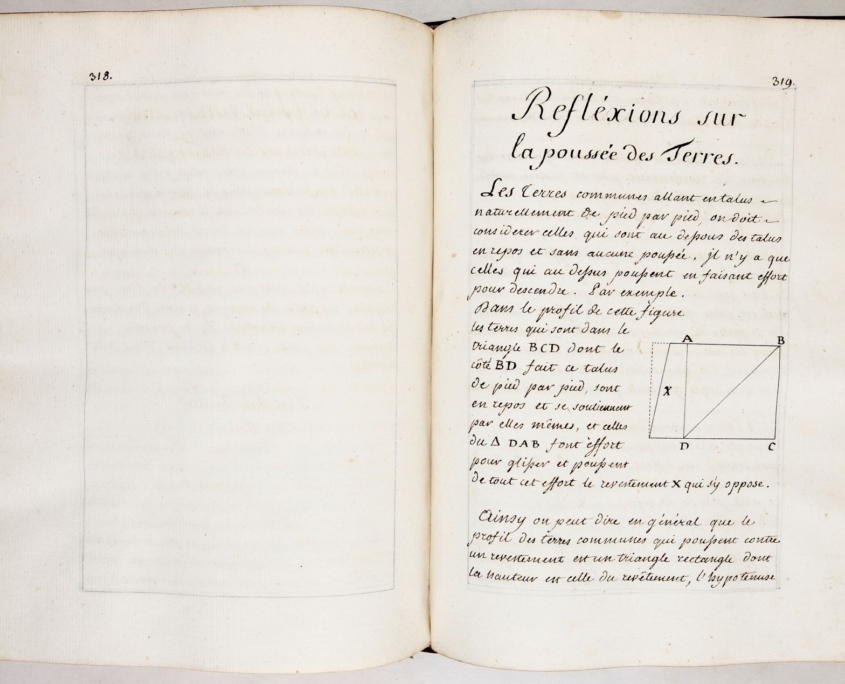 318.
319.
Refléxions sur
la poussée des Terres.
Les Terres communes allant en talus
naturellement de pied par pied, on doit
considerer celles qui sont au dessous des talus
en repos et sans aucune poussée. jl n'y a que
celles qui au dessus poussent en faisant effort
pour descendre. Par exemple.
Dans le profil de cette figure
les terres qui sont dans le
triangle BCD dont le
côté BD fait ce talus
de pied par pied, sont
en repos et se soutiennent
par elles mêmes, et celles
du Δ DAB font effort
pour glisser et poussent
de tout cet effort le revertement X qui s'y oppose.
A
B
X
D
C
Ainsy on peut dire en général que le
profil des terres communes qui poussent contre
un revertement est un triangle rectangle dont
la hauteur est celle du revêtement, l'hypotenuse